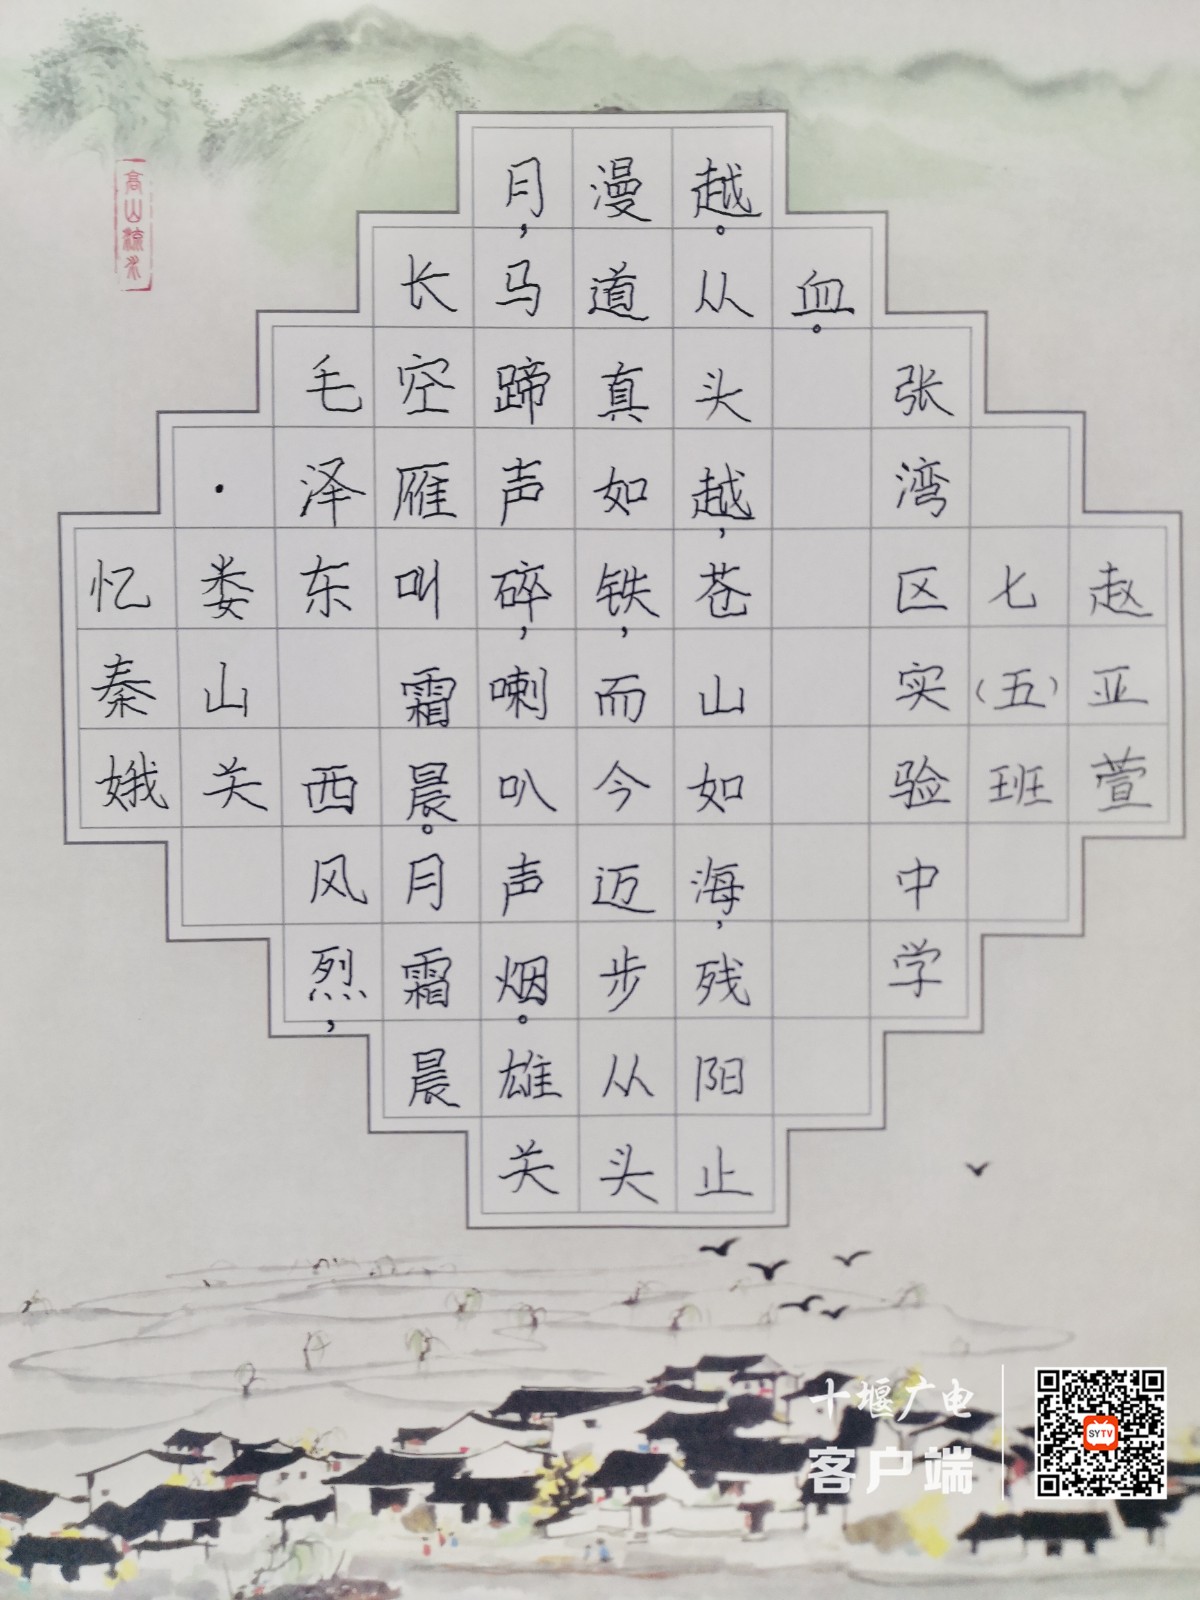 高山流水
忆秦娥
·娄山关
毛泽东 西风烈，
长空雁叫霜晨。月霜晨
月，马蹄声碎，喇叭声烟。雄关
漫道真如铁，而今迈步从头
越。从头越，苍山如海，残阳止
血。
张湾区实验中学
七（五）班
赵亚萱
十堰广电
客户端
SYTV